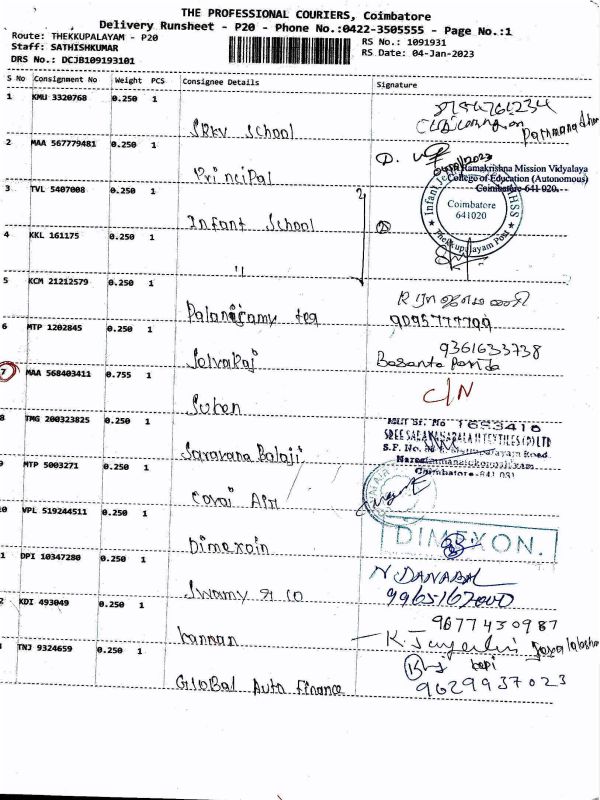 THE PROFESSIONAL COURIERS, Coimbatore
Delivery Runsheet - P20 - Phone No.:0422-3505555 - Page No.:1
Route: THEKKUPALAYAM - P20
Staff: SATHISHKUMAR
DRS No.: DCJB109193101
RS No.: 1091931
RS Date: 04-Jan-2023
S No Consignment No Weight PCS Consignee Details Signature
1 KMU 3320768 0.250 1
SRKV School
2 MAA 567779481 0.250 1
Principal
Ramakrishna Mission Vidyalaya
College of Education (Autonomous)
Coimbatore-641 020.
3 TVL 5407008 0.250 1
Infant School
Infant
HSS
Coimbatore
641020
Thekkupalayam Post
4 KKL 161175 0.250 1
"
5 KCM 21212579 0.250 1
Palanisamy tea
9095777799
6 MTP 1202845 0.250 1
Selvaraj
9361633738
7 MAA 568403411 0.755 1
Suben
C/N
8 TMG 200323825 0.250 1
Saravana Balaji
9 MTP 5003271 0.250 1
Covai Air
10 VPL 519244511 0.250 1
Dimexoin
DIMEXON.
1 DPI 10347280 0.250 1
Swamy & co
N DANABAL
2 KDI 493049 0.250 1
kannan
9677430987
TNJ 9324659 0.250 1
Global Auto Finance
9629937023